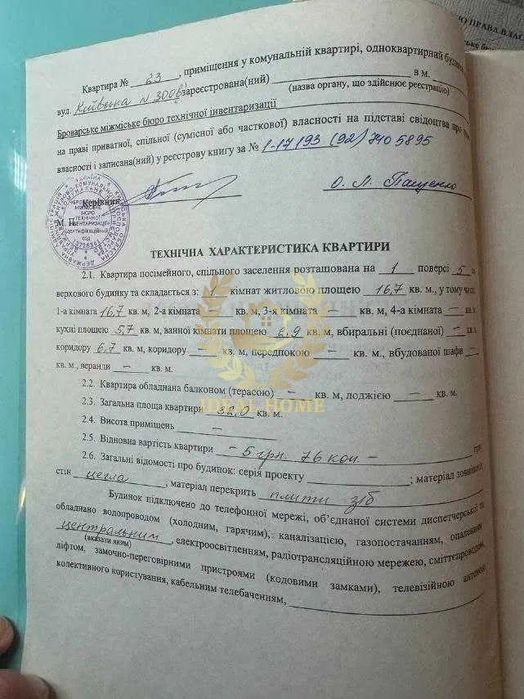 Ю ПРАВА ВЛАС
Квартира № 23, приміщення у комунальній квартирі, одноквартирний будинок
в м.
вул. Київська N 300б зареєстрована(ний)
(назва органу, що здійснює реєстрацію)
Броварське міжміське бюро технічної інвентаризації
на праві приватної, спільної (сумісної або часткової) власності на підставі свідоцтва про
власності і записана(ний) у реєстрову книгу за № 1-17193 (92)/7405895
Керівник О. М. Пащенко
М. П.
ТЕХНІЧНА ХАРАКТЕРИСТИКА КВАРТИРИ
2.1. Квартира посімейного, спільного заселення розташована на 1 поверсі 5
верхового будинку та складається з: 1 кімнат житловою площею 16,7 кв. м., у тому числі
1-а кімната 16,7 кв. м, 2-а кімната — кв. м, 3-я кімната — кв. м, 4-а кімната — кв.
кухні площею 5,7 кв. м, ванної кімнати площею 2,9 кв. м, вбиральні (поєднаної) — кв.
коридору 6,7 кв. м, коридору — кв. м, передпокою — кв. м., вбудованої шафи —
кв. м., веранди — кв. м.
2.2. Квартира обладнана балконом (терасою) кв. м, лоджією — кв. м.
2.3. Загальна площа квартири 32,0 кв. м.
2.4. Висота приміщень —
2.5. Відновна вартість квартири – 5 грн. 76 коп – грн.
2.6. Загальні відомості про будинок: серія проекту ; матеріал зовнішніх
стін цегла, матеріал перекрить плити з/б
Будинок підключено до телефонної мережі, об'єднаної системи диспетчерської та
обладнано водопроводом (холодним, гарячим), каналізацією, газопостачанням, опаленням
центральним, електроосвітленням, радіотрансляційною мережею, сміттєпроводом,
(вказати яким)
ліфтом, замочно-переговорними пристроями (кодовими замками), телевізійною антеною
колективного користування, кабельним телебаченням,
IDEAL HOME